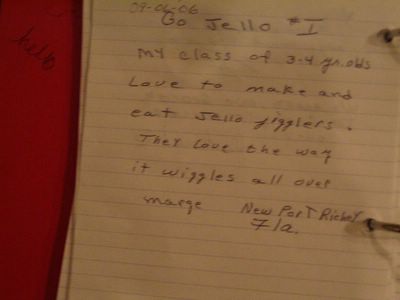 09-06-06
Go Jello #I
My class of 3-4 yr. olds
Love to make and
eat Jello jigglers.
They Love the way
it wiggles all over
marge New Port Richey
Fla.
hello